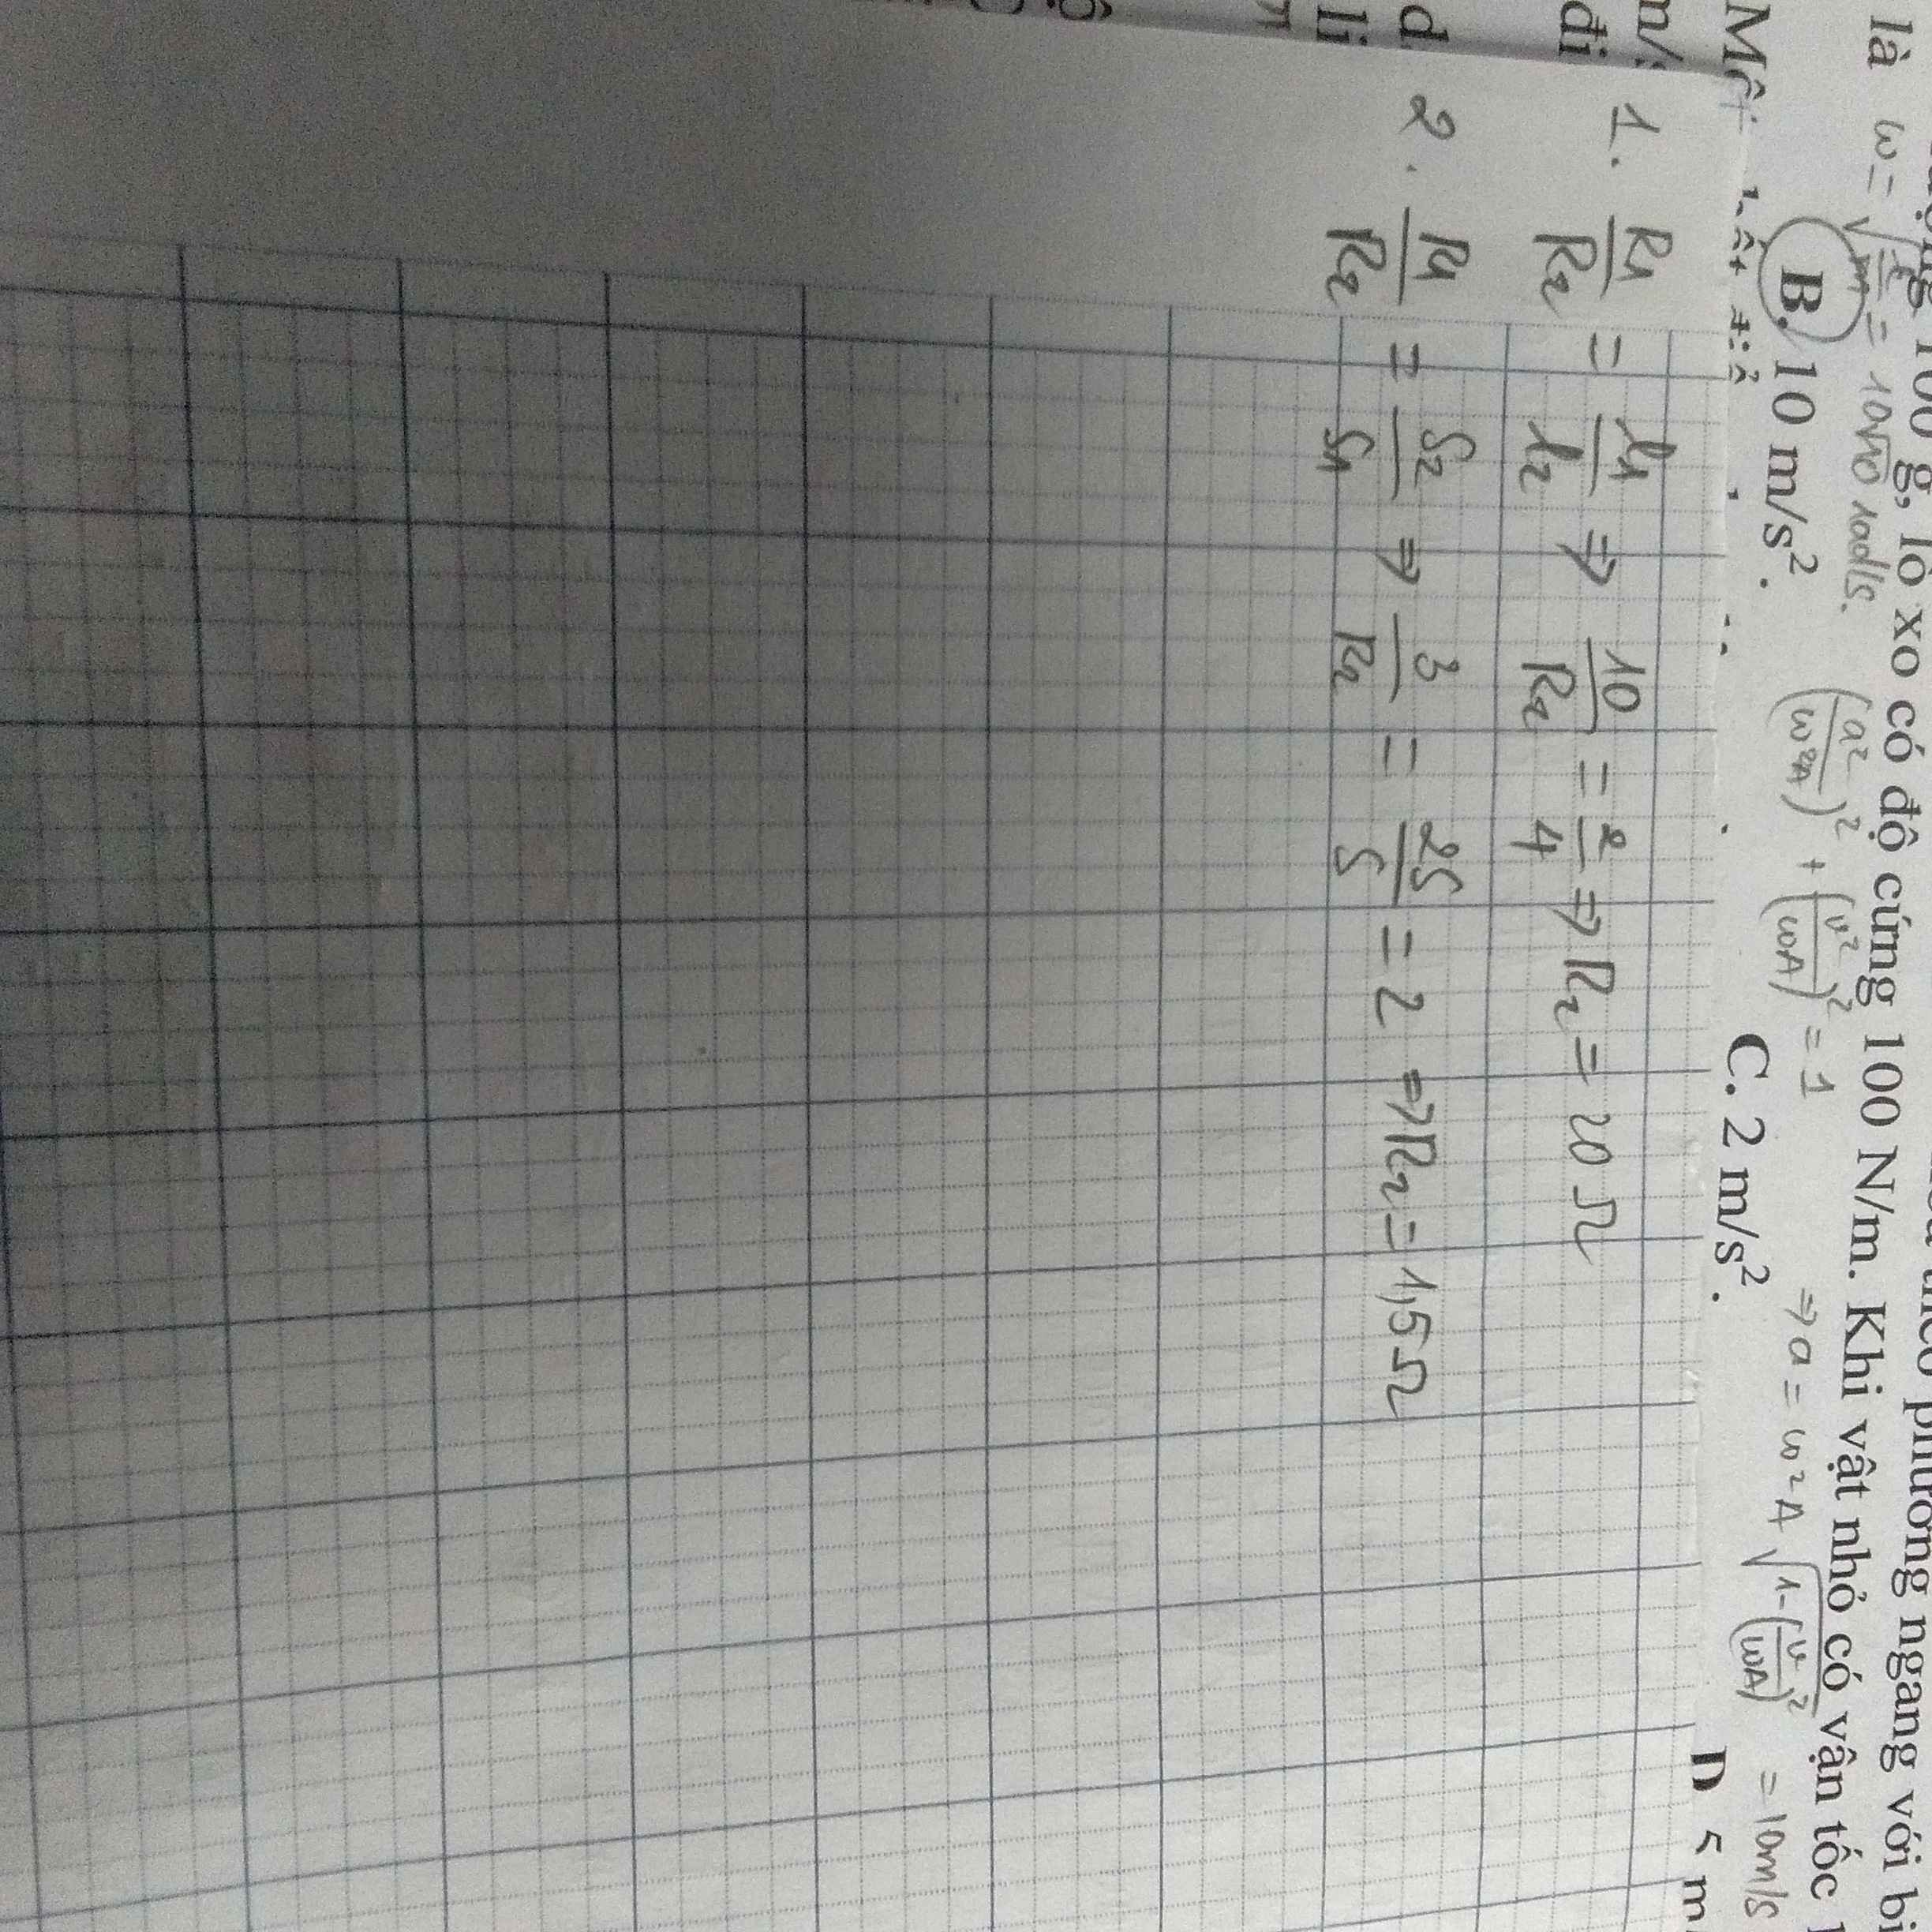 100 g, lò xo có độ cứng 100 N/m. Khi vật nhỏ có vận tốc
là ω = √(k/m) = 10√10 rad/s.
(a²/ω²A)² + (v²/ωA)² = 1 ⇒ a = ω²A √(1-(v/ωA)²) = 10m/s
B. 10 m/s². C. 2 m/s². D 5 m
1. R1/R2 = l1/l2 ⇒ 10/R2 = 2/4 ⇒ R2 = 20 Ω
2. R1/R2 = S2/S1 ⇒ 3/R2 = 2S/S = 2 ⇒ R2 = 1,5 Ω